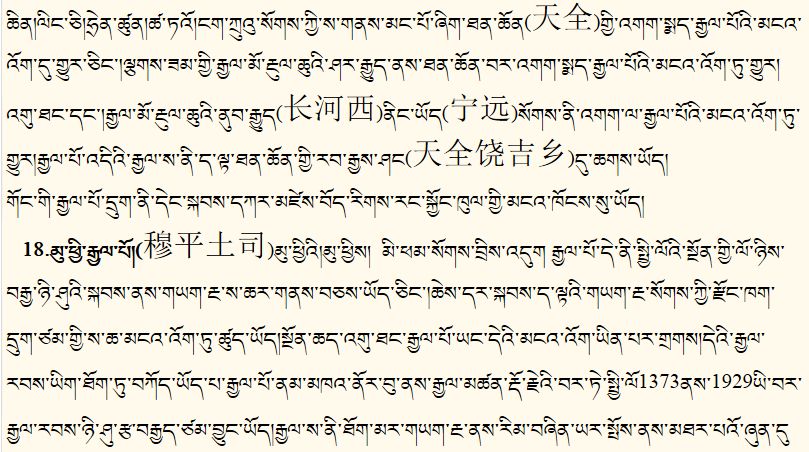 ཆེན།ལིང་ཅི།ཧྲེན་ཚུན།ཚ་ཏའོ།ངག་ཀྲུའུ་སོགས་ཀྱི་ས་གནས་མང་པོ་ཞིག་ཐན་ཆོན(天全)ཀྱི་འགག་སྨད་རྒྱལ་པོའི་མངའ་
འོག་ཏུ་གྱུར་ཅིང་།ལྕགས་ཟམ་གྱི་རྒྱལ་མོ་རྔུལ་ཆུའི་ཤར་རྒྱུད་ནས་ཐན་ཆོན་བར་འགག་སྨད་རྒྱལ་པོའི་མངའ་འོག་ཏུ་གྱུར།
འགུ་ཐང་དང་།རྒྱལ་མོ་རྔུལ་ཆུའི་ནུབ་རྒྱུད(长河西)ནིང་ཡོད(宁远)སོགས་ནི་འགག་ལ་རྒྱལ་པོའི་མངའ་འོག་ཏུ་
གྱུར།རྒྱལ་པོ་འདིའི་རྒྱལ་ས་ནི་ད་ལྟ་ཐན་ཆོན་གྱི་རབ་རྒྱས་ཤང(天全饶吉乡)དུ་ཆགས་ཡོད།
གོང་གི་རྒྱལ་པོ་དྲུག་ནི་དེང་སྐབས་དཀར་མཛེས་བོད་རིགས་རང་སྐྱོང་ཁུལ་གྱི་མངའ་ཁོངས་སུ་ཡོད།
18.མུ་ཕྱི་རྒྱལ་པོ།(穆平土司)མུ་ཕྱིའི།མུ་ཕྱིས། མི་ཕམ་སོགས་བྲིས་འདུག རྒྱལ་པོ་དེ་ནི་སྤྱི་ལོའི་སྔོན་གྱི་ལོ་ཉིས་
བརྒྱ་ཉི་ཤུའི་སྐབས་ནས་གཡག་རྔ་ས་ཆར་གནས་བཅས་ཡོད་ཅིང་།ཆེས་དར་སྐབས་ད་ལྟའི་གཡག་རྔ་སོགས་ཀྱི་རྫོང་ཁག་
དྲུག་ཙམ་གྱི་ས་ཆ་མངའ་འོག་ཏུ་ཚུད་ཡོད།སྔོན་ཆད་འགུ་ཐང་རྒྱལ་པོ་ཡང་དེའི་མངའ་འོག་ཡིན་པར་གྲགས།དེའི་རྒྱལ་
རབས་ཡིག་ཐོག་ཏུ་བཀོད་ཡོད་པ་རྒྱལ་པོ་ནམ་མཁའ་ནོར་བུ་ནས་རྒྱལ་མཚན་རྡོ་རྗེའི་བར་ཏེ་སྤྱི་ལོ1373ནས་1929ཡི་བར་
རྒྱལ་རབས་ཉི་ཤུ་རྩ་བརྒྱད་ཙམ་བྱུང་ཡོད།རྒྱལ་ས་ནི་ཐོག་མར་གཡག་རྔ་ནས་རིམ་བཞིན་ཡར་སྤོས་ནས་མཐར་པའོ་ཞུན་དུ